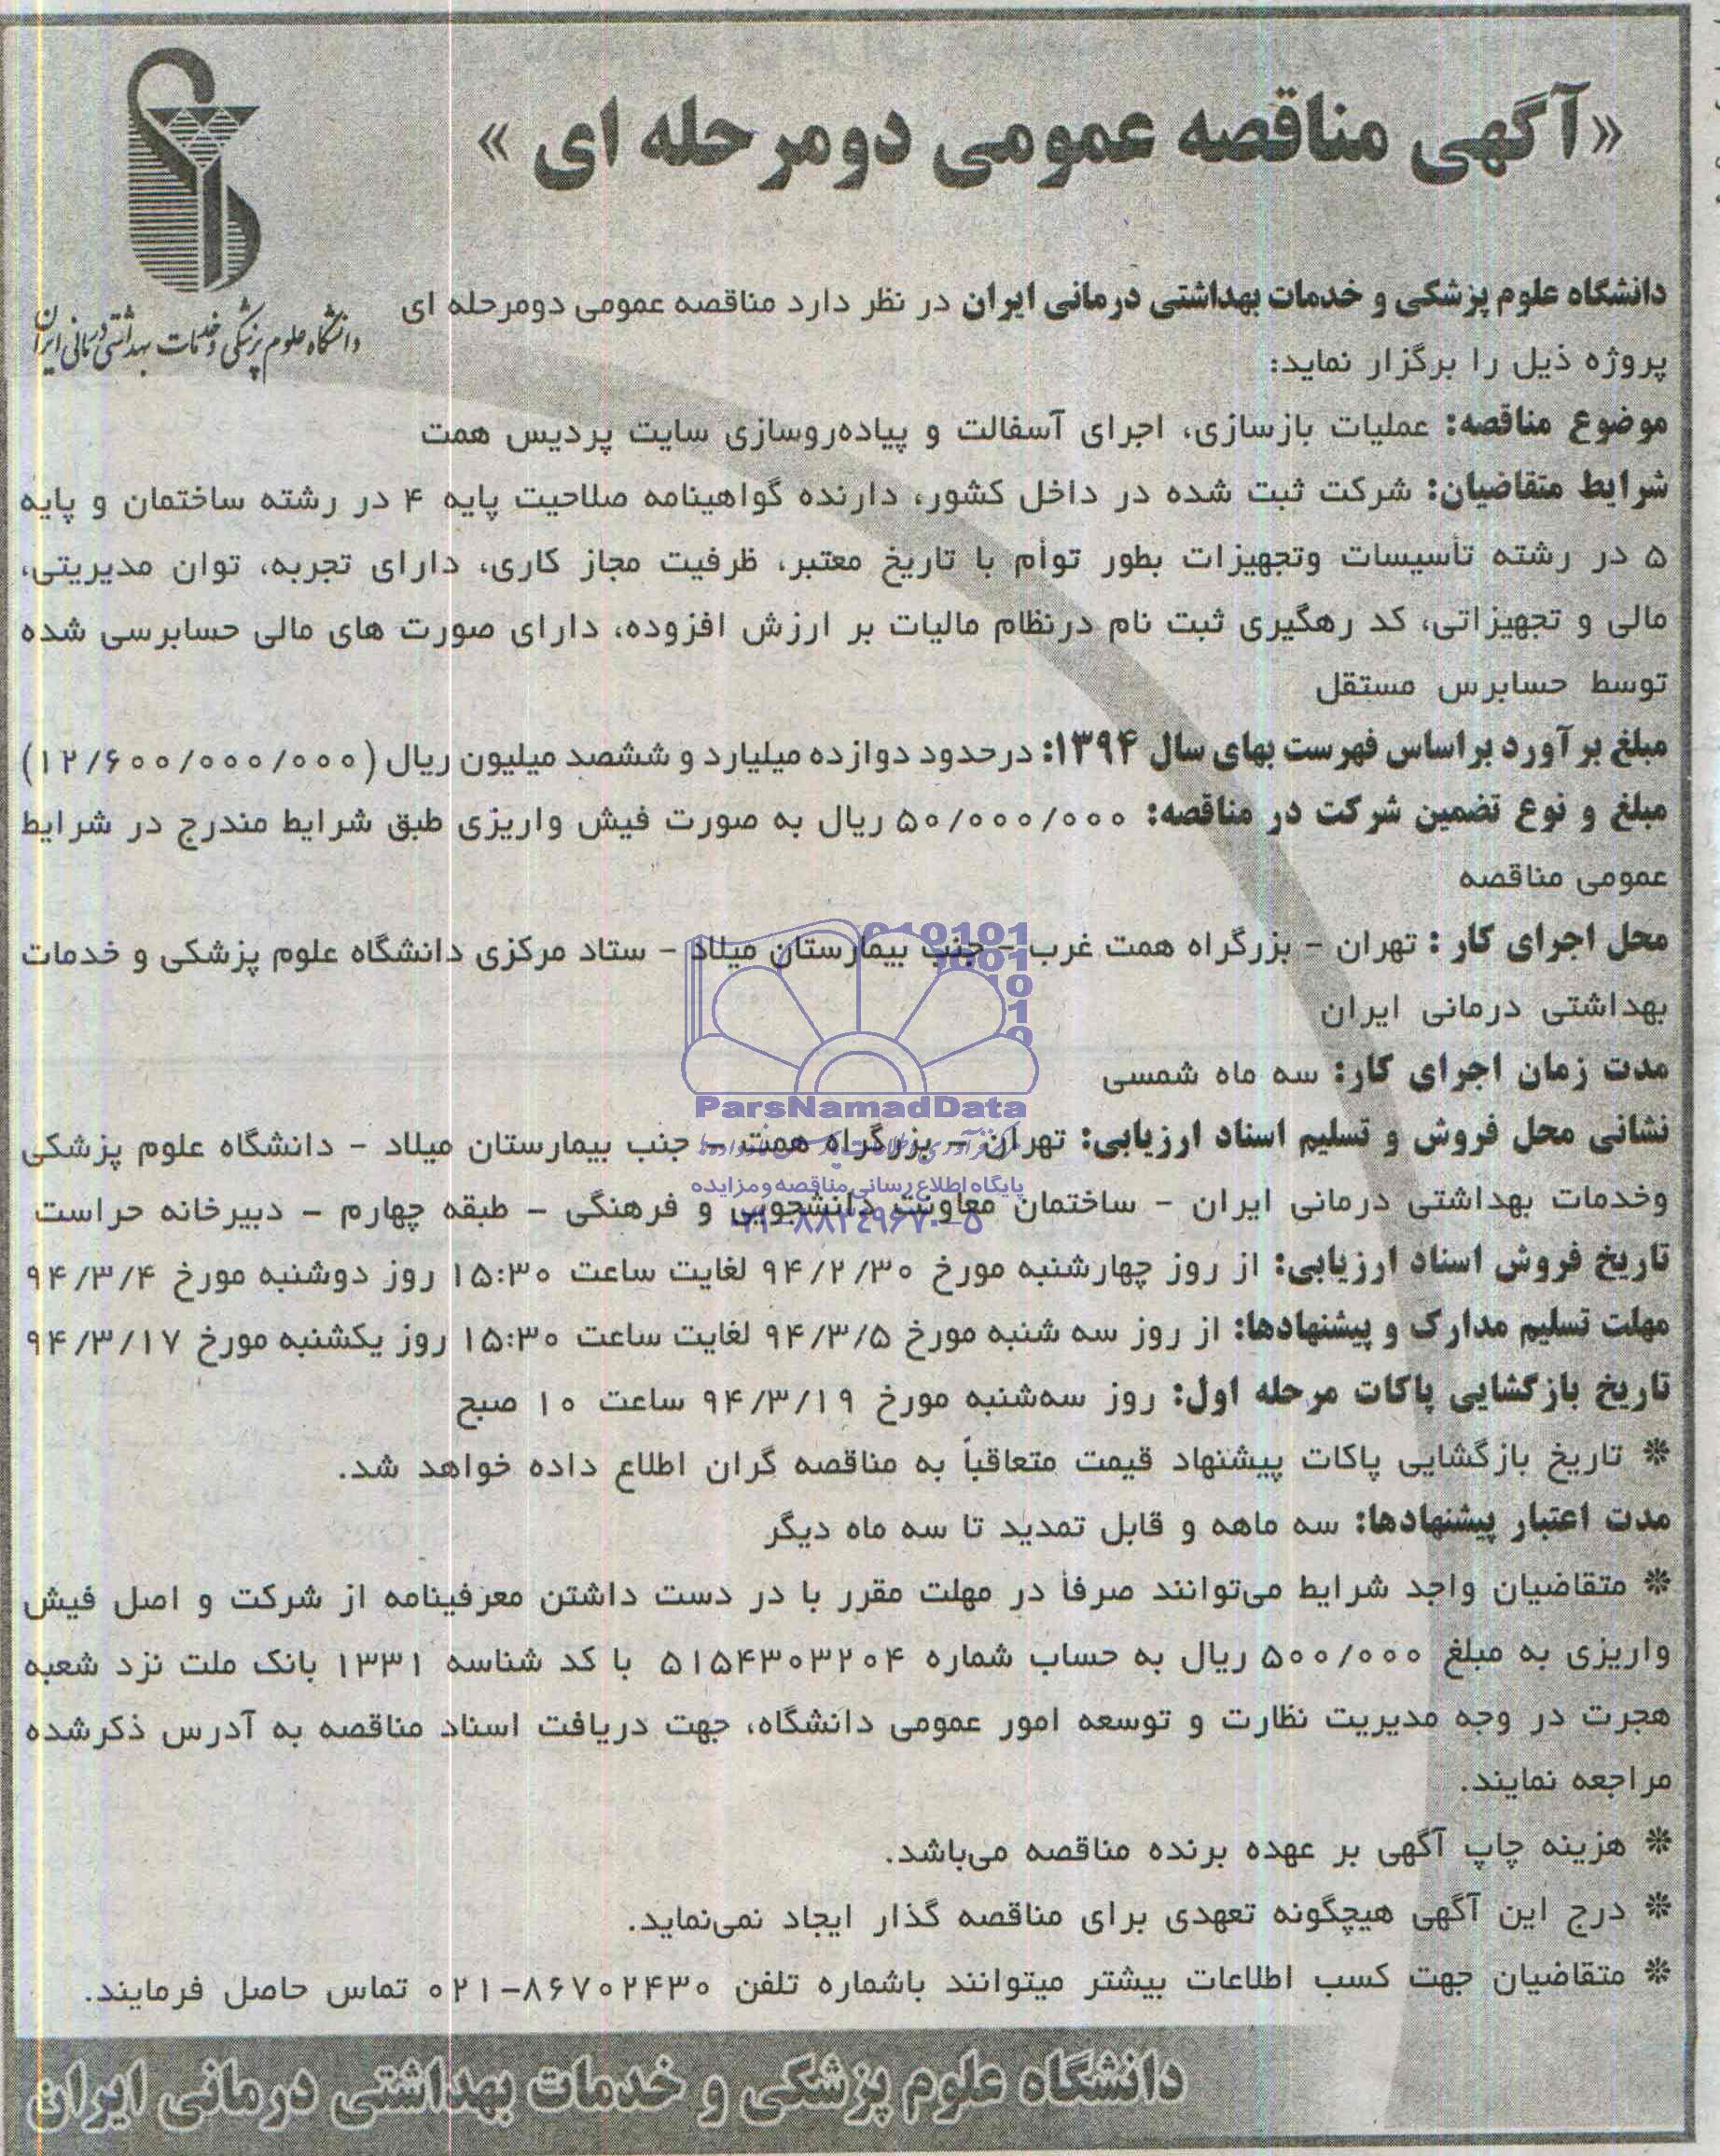 «آگهی مناقصه عمومی دومرحله ای»
دانشگاه علوم پزشکی و خدمات بهداشتی درمانی ایران
دانشگاه علوم پزشکی و خدمات بهداشتی درمانی ایران در نظر دارد مناقصه عمومی دومرحله ای
پروژه ذیل را برگزار نماید:
موضوع مناقصه: عملیات بازسازی، اجرای آسفالت و پیاده‌روسازی سایت پردیس همت
شرایط متقاضیان: شرکت ثبت شده در داخل کشور، دارنده گواهینامه صلاحیت پایه ۴ در رشته ساختمان و پایه
۵ در رشته تأسیسات وتجهیزات بطور توأم با تاریخ معتبر، ظرفیت مجاز کاری، دارای تجربه، توان مدیریتی،
مالی و تجهیزاتی، کد رهگیری ثبت نام درنظام مالیات بر ارزش افزوده، دارای صورت های مالی حسابرسی شده
توسط حسابرس مستقل
مبلغ برآورد براساس فهرست بهای سال ۱۳۹۴: درحدود دوازده میلیارد و ششصد میلیون ریال (۱۲/۶۰۰/۰۰۰/۰۰۰)
مبلغ و نوع تضمین شرکت در مناقصه: ۵۰/۰۰۰/۰۰۰ ریال به صورت فیش واریزی طبق شرایط مندرج در شرایط
عمومی مناقصه
محل اجرای کار : تهران - بزرگراه همت غرب - جنب بیمارستان میلاد - ستاد مرکزی دانشگاه علوم پزشکی و خدمات
بهداشتی درمانی ایران
مدت زمان اجرای کار: سه ماه شمسی
ParsNamadData
نشانی محل فروش و تسلیم اسناد ارزیابی: تهران - بزرگراه همت - جنب بیمارستان میلاد - دانشگاه علوم پزشکی
پایگاه اطلاع رسانی مناقصه و مزایده
وخدمات بهداشتی درمانی ایران - ساختمان معاونت دانشجویی و فرهنگی - طبقه چهارم - دبیرخانه حراست
۰۲۱-۸۸۳۴۹۶۷۰-۵
تاریخ فروش اسناد ارزیابی: از روز چهارشنبه مورخ ۹۴/۲/۳۰ لغایت ساعت ۱۵:۳۰ روز دوشنبه مورخ ۹۴/۳/۴
مهلت تسلیم مدارک و پیشنهادها: از روز سه شنبه مورخ ۹۴/۳/۵ لغایت ساعت ۱۵:۳۰ روز یکشنبه مورخ ۹۴/۳/۱۷
تاریخ بازگشایی پاکات مرحله اول: روز سه‌شنبه مورخ ۹۴/۳/۱۹ ساعت ۱۰ صبح
* تاریخ بازگشایی پاکات پیشنهاد قیمت متعاقباً به مناقصه گران اطلاع داده خواهد شد.
مدت اعتبار پیشنهادها: سه ماهه و قابل تمدید تا سه ماه دیگر
* متقاضیان واجد شرایط می‌توانند صرفاً در مهلت مقرر با در دست داشتن معرفینامه از شرکت و اصل فیش
واریزی به مبلغ ۵۰۰/۰۰۰ ریال به حساب شماره ۵۱۵۴۳۰۳۲۰۴ با کد شناسه ۱۳۳۱ بانک ملت نزد شعبه
هجرت در وجه مدیریت نظارت و توسعه امور عمومی دانشگاه، جهت دریافت اسناد مناقصه به آدرس ذکرشده
مراجعه نمایند.
* هزینه چاپ آگهی بر عهده برنده مناقصه می‌باشد.
* درج این آگهی هیچگونه تعهدی برای مناقصه گذار ایجاد نمی‌نماید.
* متقاضیان جهت کسب اطلاعات بیشتر میتوانند باشماره تلفن ۸۶۷۰۲۴۳۰-۰۲۱ تماس حاصل فرمایند.
دانشگاه علوم پزشکی و خدمات بهداشتی درمانی ایران